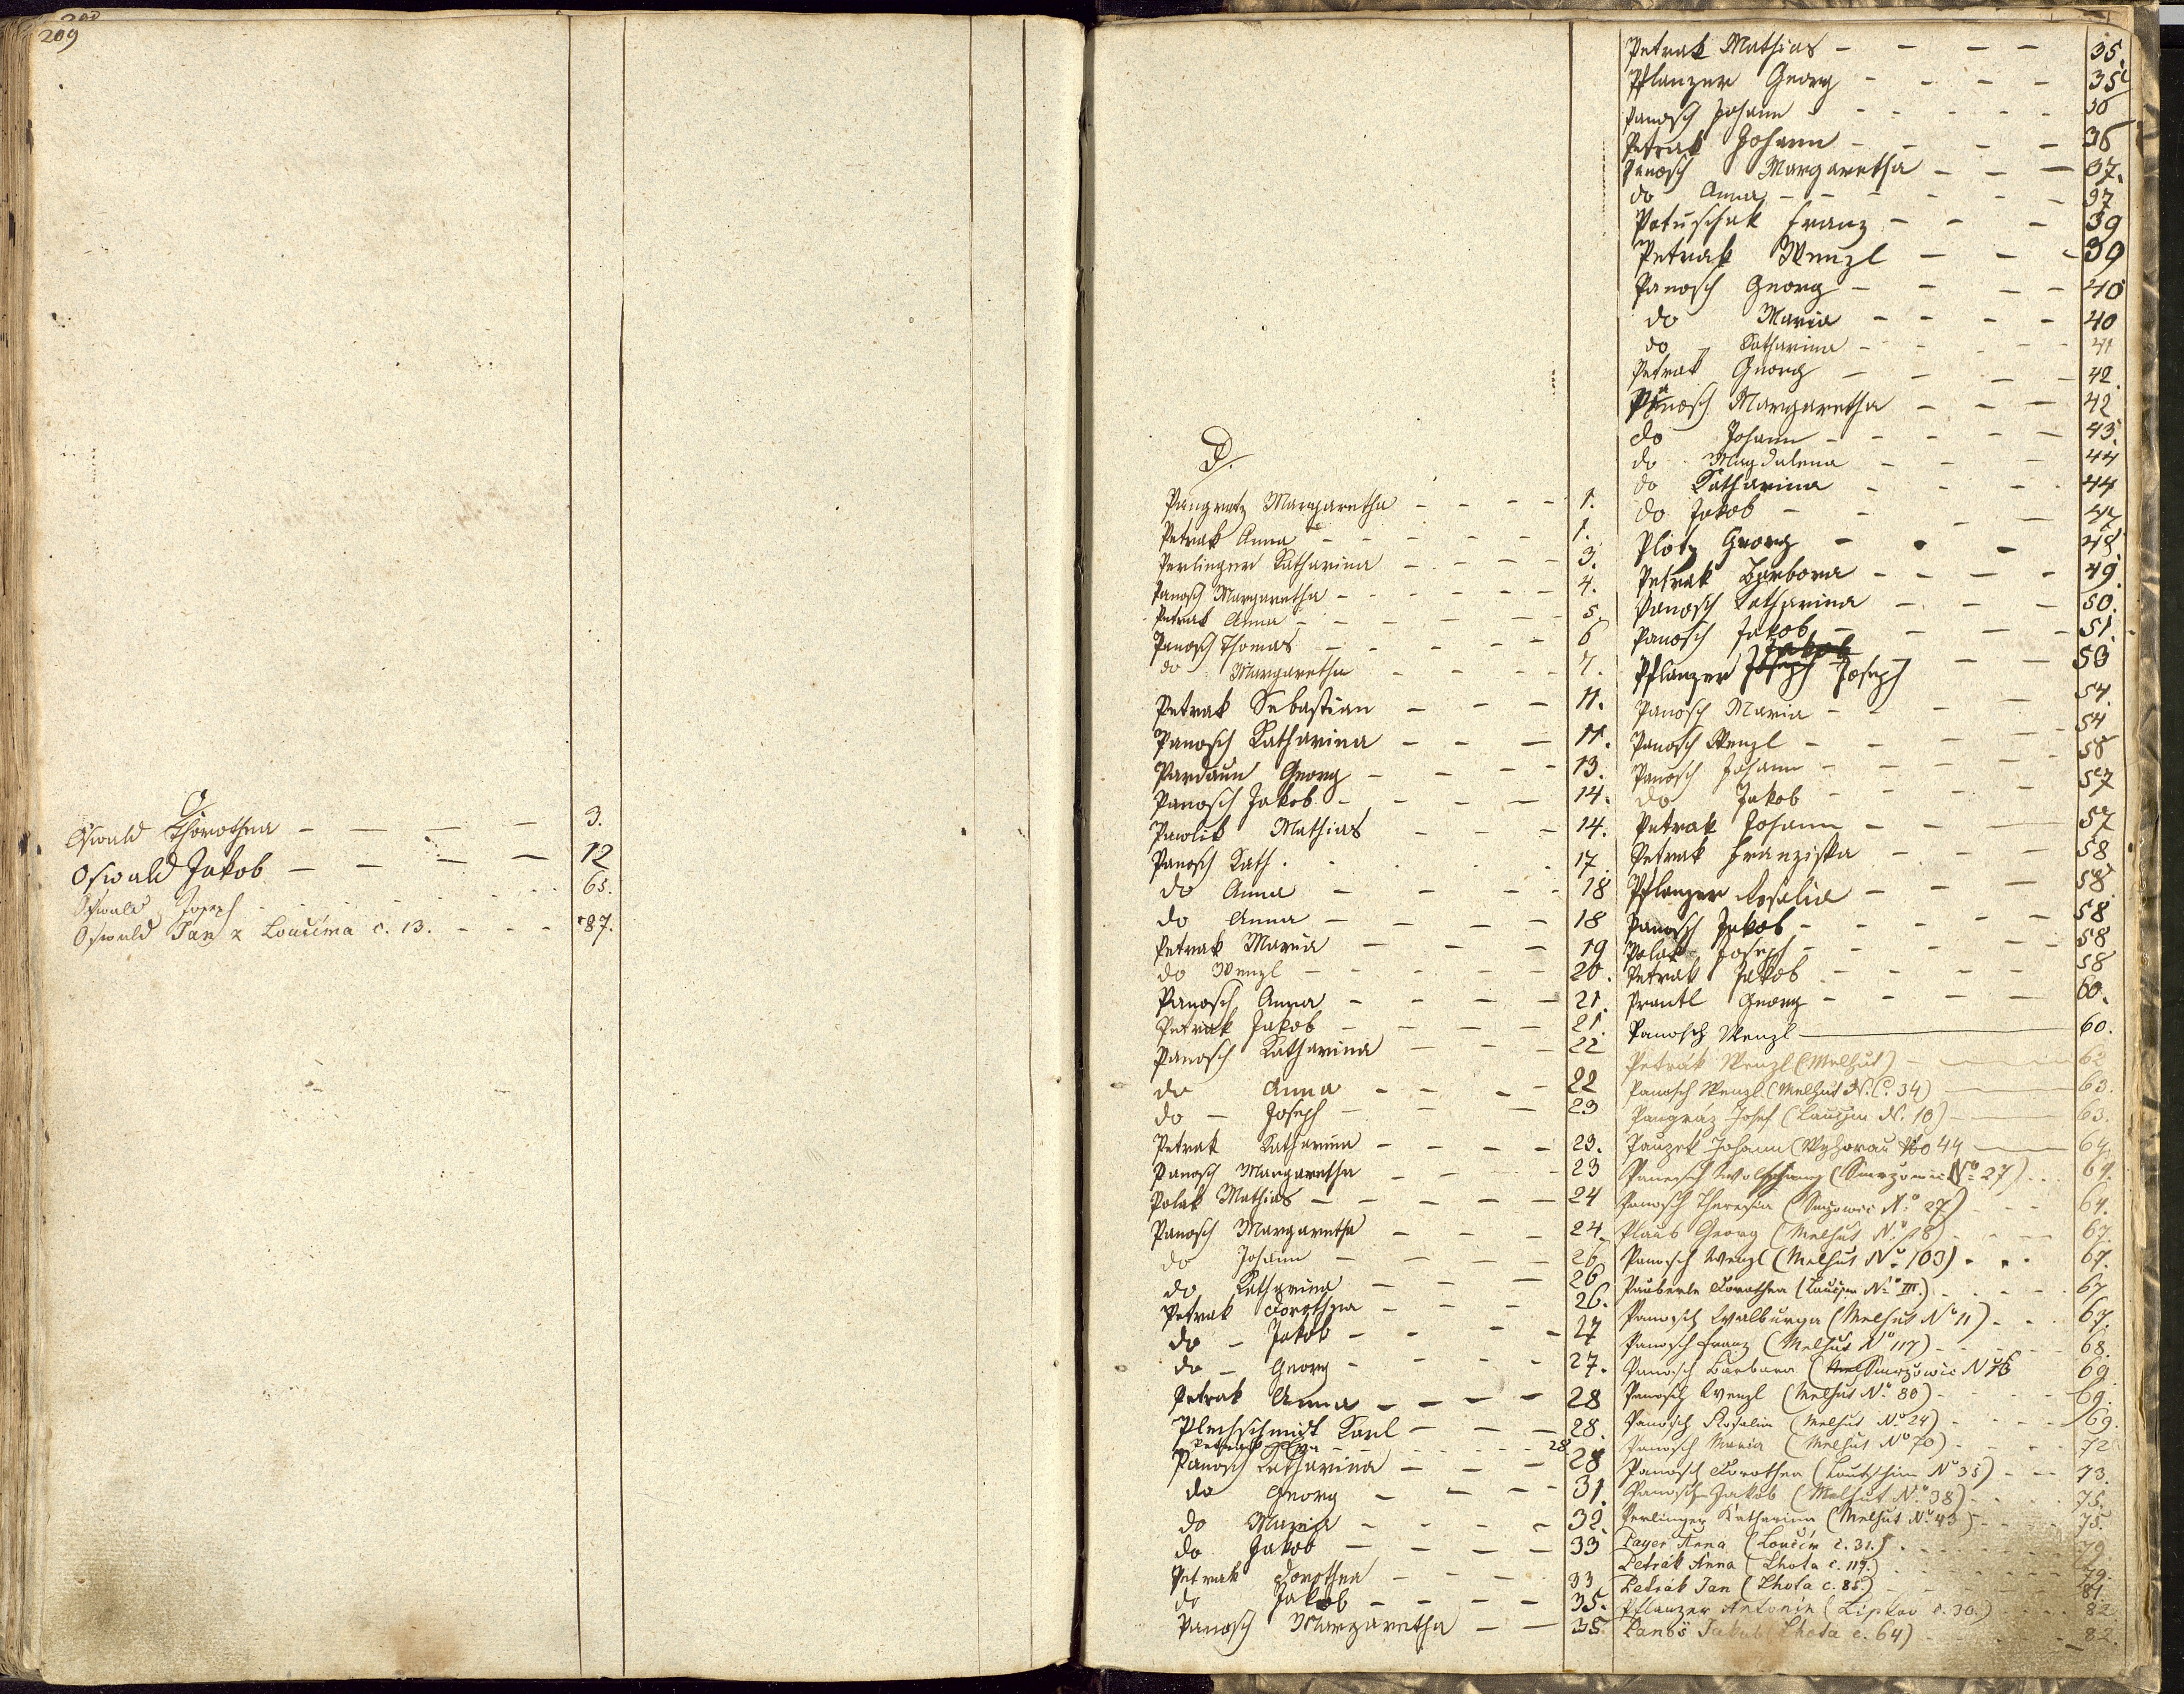 209
O
Oswald Thorothea - - - - 3.
Oswald Jakob - - - - 12
Oswald Joseph 65.
Oswald Jan z Loučima č. 13. - - - 87.
P.
Pangratz Margaretha - - - - 1.
Petrak Anna - - - - - 1.
Perlinger Katharina - - - - 3.
Panosch Margaretha - - - - - 4.
Petrak Anna - - - - - 5.
Panosch Thomas - - - - - 6
do Margaretha - - - - 7.
Petrak Sebastian - - - 11.
Panosch Katharina - - - 11.
Pardaun Georg - - - - 13.
Panosch Jakob - - - - 14.
Pawlik Mathias - - - 14.
Panosch Kath. 17
do Anna - - - - 18
do Anna - - - - 18
Petrak Maria - - - - 19
do Wenzl - - - - - 20.
Panosch Anna - - - - 21.
Petrak Jakob - - - - 21.
Panosch Katharina - - - 22
do Anna - - - - 22
do - Joseph - - - - 23
Petrak Katharina - - - - 23.
Panosch Margaretha - - - - 23
Polak Mathias - - - - - 24
Panosch Margaretha - - - - 24.
do Johann - - - - 26
do Katharina - - - - 26
Petrak Dorothea - - - - 26.
do - Jakob - - - - 27
do - Georg - - - - 27.
Petrak Anna - - - - 28
Plechschmidt Karl - - - - 28.
Petrak - - - - 28
Panosch Katharina - - - - 28
do Georg - - - - 31.
do Maria - - - - 32.
do Jakob - - - - 33
Petrak Dorothea - - - - 33
do Jakob - - - - 35.
Panosch Margaretha - - 35.
Petrak Mathias - - - - 35.
Pflanzer Georg - - - - 35
Panosch Johann - - - - - 36
Petrak Johann - - - - 36
Panosch Margaretha - - - 37.
do Anna - - - - - 37
Potuschak Franz - - - 39
Petrak Wenzl - - - 39
Panosch Georg - - - - 40
do Maria - - - - 40
do Katharina - - - - 41
Petrak Georg - - - - 42.
Panosch Margaretha - - - 42
do Johann - - - - - 43.
do Magdalena - - - 44
do Katharina - - - 44
do Jakob - - - - 47
Plötz Georg - - - 48.
Petrak Barbora - - - - 49.
Panosch Katharina - - - 50.
Panosch Jakob - - - - 51.
Pflanzer Joseph Jakob Joseph - - 53
Panosch Maria - - - - 54.
Panosch Wenzl - - - - 54
Panosch Johann - - - - - 56
do Jakob - - - - 57
Petrak Johann - - - 57
Petrak Franziska - - - 58
Pflanzer Rosalia - - - 58.
Panosch Jakob - - - - - 58
Polak Joseph - - - - - 58
Petrak Jakob - - - - - 58
Prantl Georg - - - - 60.
Panosch Wenzl 60.
Petrák Wenzl (Melhut) 62
Panosch Wenzl (Melhut N. C. 34) 63.
Pangraz Josef (Lauczim N. 10) 63.
Pauzek Johann (Wyhorau No 44 64.
Panosch Wolfgang (Smrzowic No 27) 64.
Panosch Theresia (Smrzowic No 27) - - - 64.
Plaus Georg (Melhut No 18) - - - 67.
Panosch Wenzl (Melhut No 103) - - - 67.
Pauberle Dorothea (Lauczim No III.) - - - 67
Panosch Walburga (Melhut No 11) - - - 67.
Panosch Franz (Melhut No 117) - - - 68.
Panosch Barbara (Smrzowic N 69
Panosch Wenzl (Melhut No 80) - - - 69.
Panosch Rosalia (Melhut No 24) - - - 69.
Panosch Maria (Melhut No 70) - - - 72
Panosch Dorothea (Lautschim No 35) - - - 73.
Panosch Jakob (Melhut No 38) - - - 75.
Perlinger Katharina (Melhut No 43) - - - 75.
Payer Anna (Loučim č. 31.) 79.
Petrák Anna (Lhota č. 117.) 79.
Petrák Jan (Lhota č. 85.) 81.
Pflanzer Antonín (Lipkov č. 30.) 82.
Panoš Jakub (Lhota č. 64) 82.